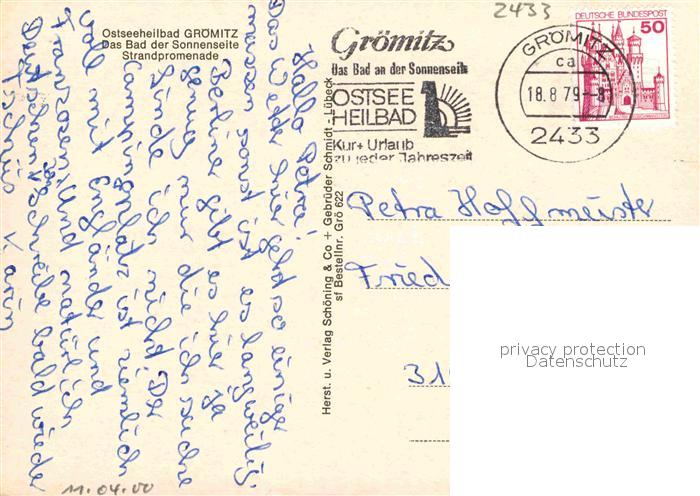 2433
Ostseeheilbad GRÖMITZ
Das Bad der Sonnenseite
Strandpromenade
Grömitz
Das Bad an der Sonnenseite
OSTSEE
HEILBAD
Kur + Urlaub
zu jeder Jahreszeit
DEUTSCHE BUNDESPOST
50
GRÖMITZ
ca
18.8.79-8
2433
Hallo Petra!
Das Wetter hier geht so einiger
müssen sonst ist es langweilig.
Berliner gibt es hier ja
genug nur die ich suche
finde ich nicht. Der
Campingplatz ist ziemlich
voll mit Engländer und
Franzosen und natürlich
Deutschen. Schreibe bald wieder
Tschüs Karin
Herst. u. Verlag Schöning & Co + Gebrüder Schmidt - Lübeck
sf Bestellnr. Grö 622
Petra Hoffmeister
Fried
31
privacy protection
Datenschutz
11.04.00